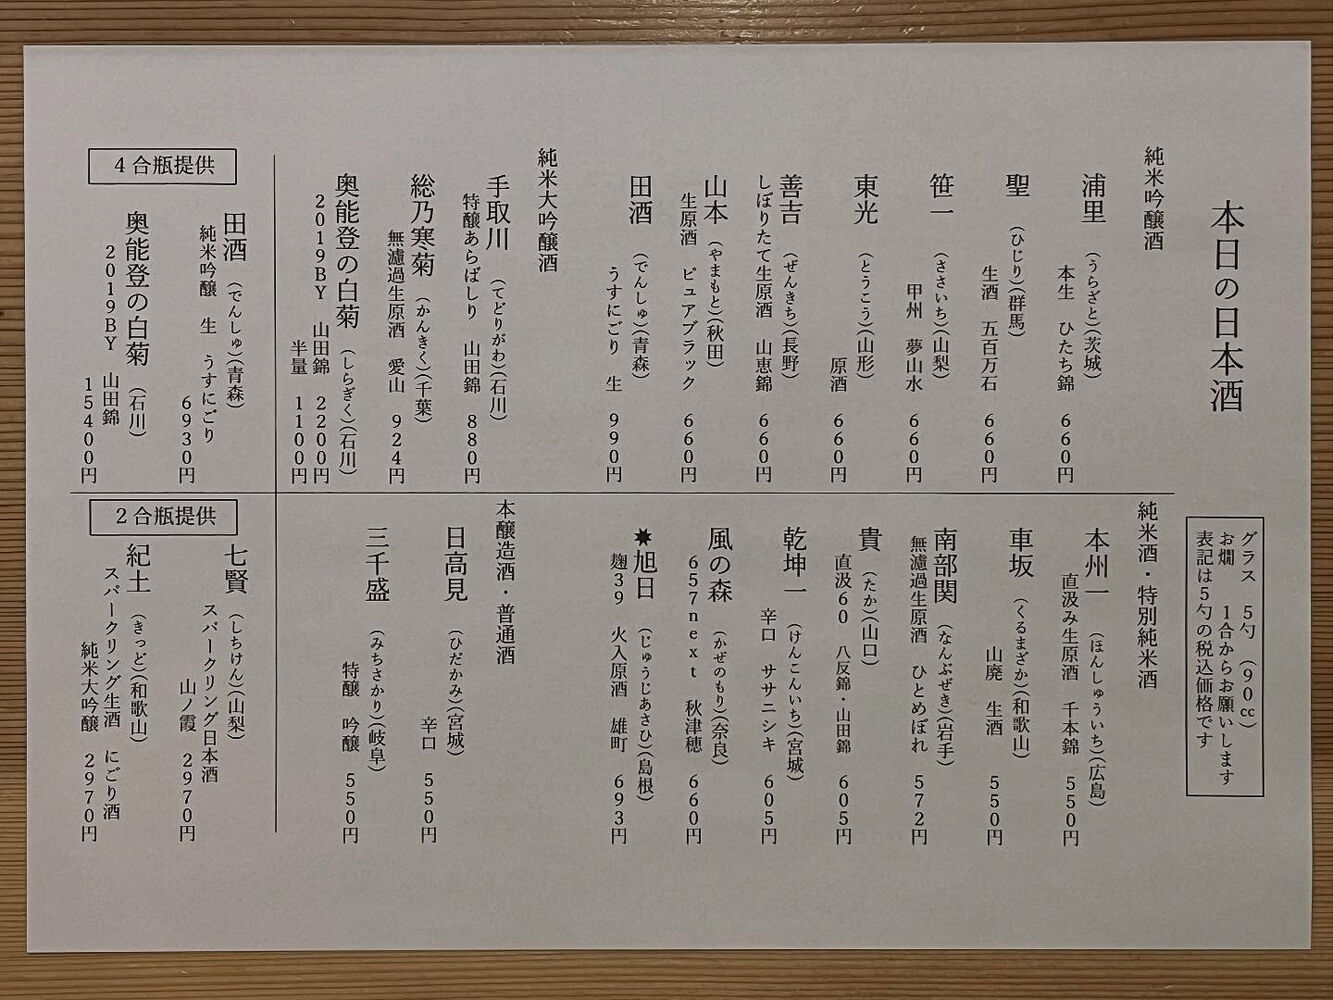 本日の日本酒
グラス　5勺　(90cc)
お燗　1合からお願いします
表記は5勺の税込価格です
純米吟醸酒
浦里　(うらざと)(茨城)
本生　ひたち錦　660円
聖　(ひじり)(群馬)
生酒　五百万石　660円
笹一　(ささいち)(山梨)
甲州　夢山水　660円
東光　(とうこう)(山形)
原酒　660円
善吉　(ぜんきち)(長野)
しぼりたて生原酒　山恵錦　660円
山本　(やまもと)(秋田)
生原酒　ピュアブラック　660円
田酒　(でんしゅ)(青森)
うすにごり　生　990円
純米大吟醸酒
手取川　(てどりがわ)(石川)
特醸あらばしり　山田錦　880円
総乃寒菊　(かんきく)(千葉)
無濾過生原酒　愛山　924円
奥能登の白菊　(しらぎく)(石川)
2019BY　山田錦　2200円
半量　1100円
純米酒・特別純米酒
本州一　(ほんしゅういち)(広島)
直汲み生原酒　千本錦　550円
車坂　(くるまざか)(和歌山)
山廃　生酒　550円
南部関　(なんぶぜき)(岩手)
無濾過生原酒　ひとめぼれ　572円
貴　(たか)(山口)
直汲60　八反錦・山田錦　605円
乾坤一　(けんこんいち)(宮城)
辛口　ササニシキ　605円
風の森　(かぜのもり)(奈良)
657next　秋津穂　660円
旭日　(じゅうじあさひ)(島根)
麹39　火入原酒　雄町　693円
本醸造酒・普通酒
日高見　(ひだかみ)(宮城)
辛口　550円
三千盛　(みちさかり)(岐阜)
特醸　吟醸　550円
4合瓶提供
田酒　(でんしゅ)(青森)
純米吟醸　生　うすにごり
6930円
奥能登の白菊　(石川)
2019BY　山田錦
15400円
2合瓶提供
七賢　(しちけん)(山梨)
スパークリング日本酒
山ノ霞　2970円
紀土　(きっど)(和歌山)
スパークリング生酒　にごり酒
純米大吟醸　2970円